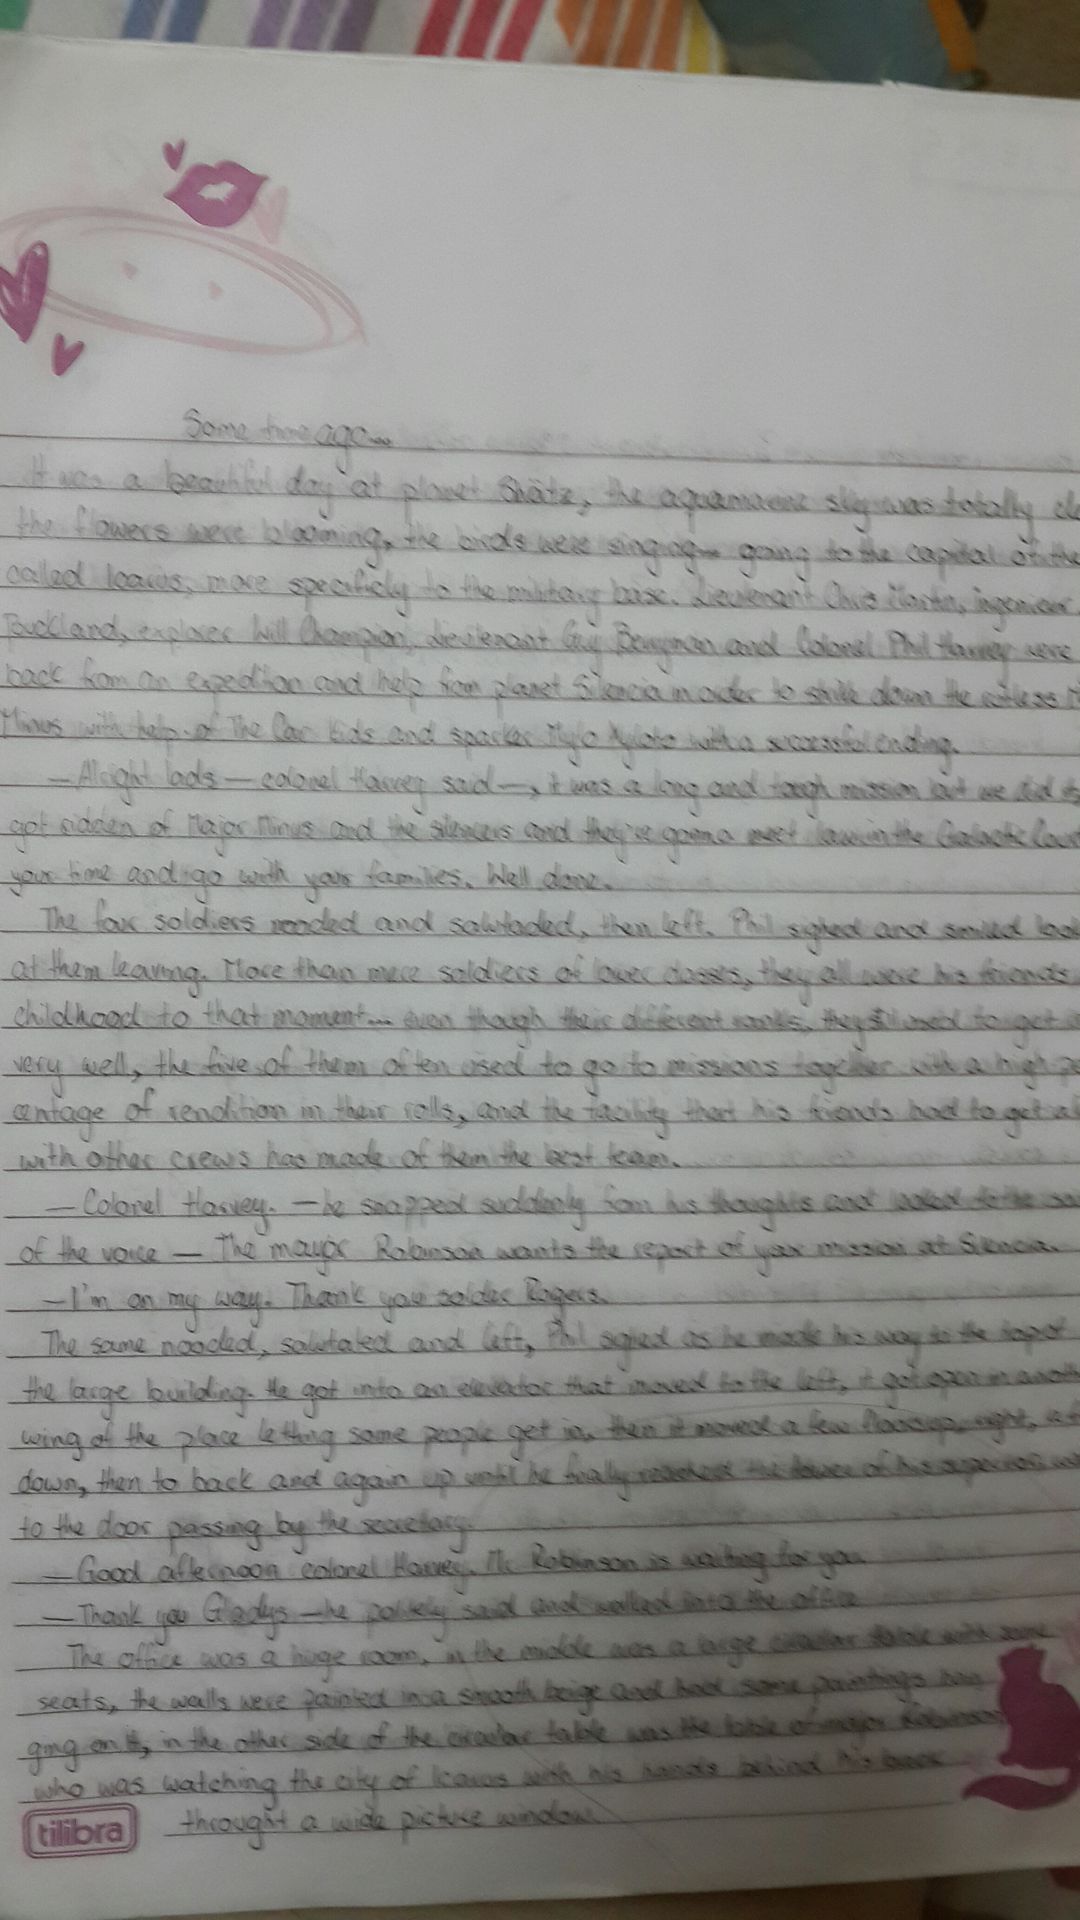 Some time ago...
It was a beautiful day at planet Shätz, the aquamarine sky was totally
the flowers were blooming, the birds were singing... going to the capital of the
called Icarus, more specificly to the military base. Lieutenant Chris Martin, ingenieur
Buckland, explorer Will Champion, Lieutenant Guy Berryman and Colonel Phil Harvey were
back from an expedition and help from planet Silencia in order to strike down the
Minus with help of The Car Kids and sparker Mylo Xyloto with a successful ending.
—Alright lads — colonel Harvey said —, it was a long and tough mission but we did
got ridden of Major Minus and the silencers and they're gonna meet law in the Galactic
your time and go with your families. Well done.
The four soldiers nooded and salutaded, then left. Phil sighed and smiled
at them leaving. More than mere soldiers of lower classes, they all were his friends
childhood to that moment... even though their different ranks, they used to get
very well, the five of them often used to go to missions together with a high
centage of rendition in their rolls, and the facility that his friends had to get
with other crews has made of them the best team.
—Colonel Harvey. —he snapped suddenly from his thoughts and looked to the
of the voice — The mayor Robinson wants the report of your mission at Silencia.
—I'm on my way. Thank you soldier Rogers.
The same nooded, salutated and left, Phil sighed as he made his way to the top of
the large building. He got into an elevator that moved to the left, it got open in
wing of the place letting some people get in, then it moved a few floors up, right,
down, then to back and again up until he finally reached the tower of his superior,
to the door passing by the secretary.
—Good afternoon colonel Harvey. Mr Robinson is waiting for you.
—Thank you Gladys —he politely said and walked into the office
The office was a huge room, in the middle was a large circular table with some
seats, the walls were painted in a smooth beige and had some paintings han
ging on it, in the other side of the circular table was the table of major Robinson,
who was watching the city of Icarus with his hands behind his back
throught a wide picture window.
tilibra